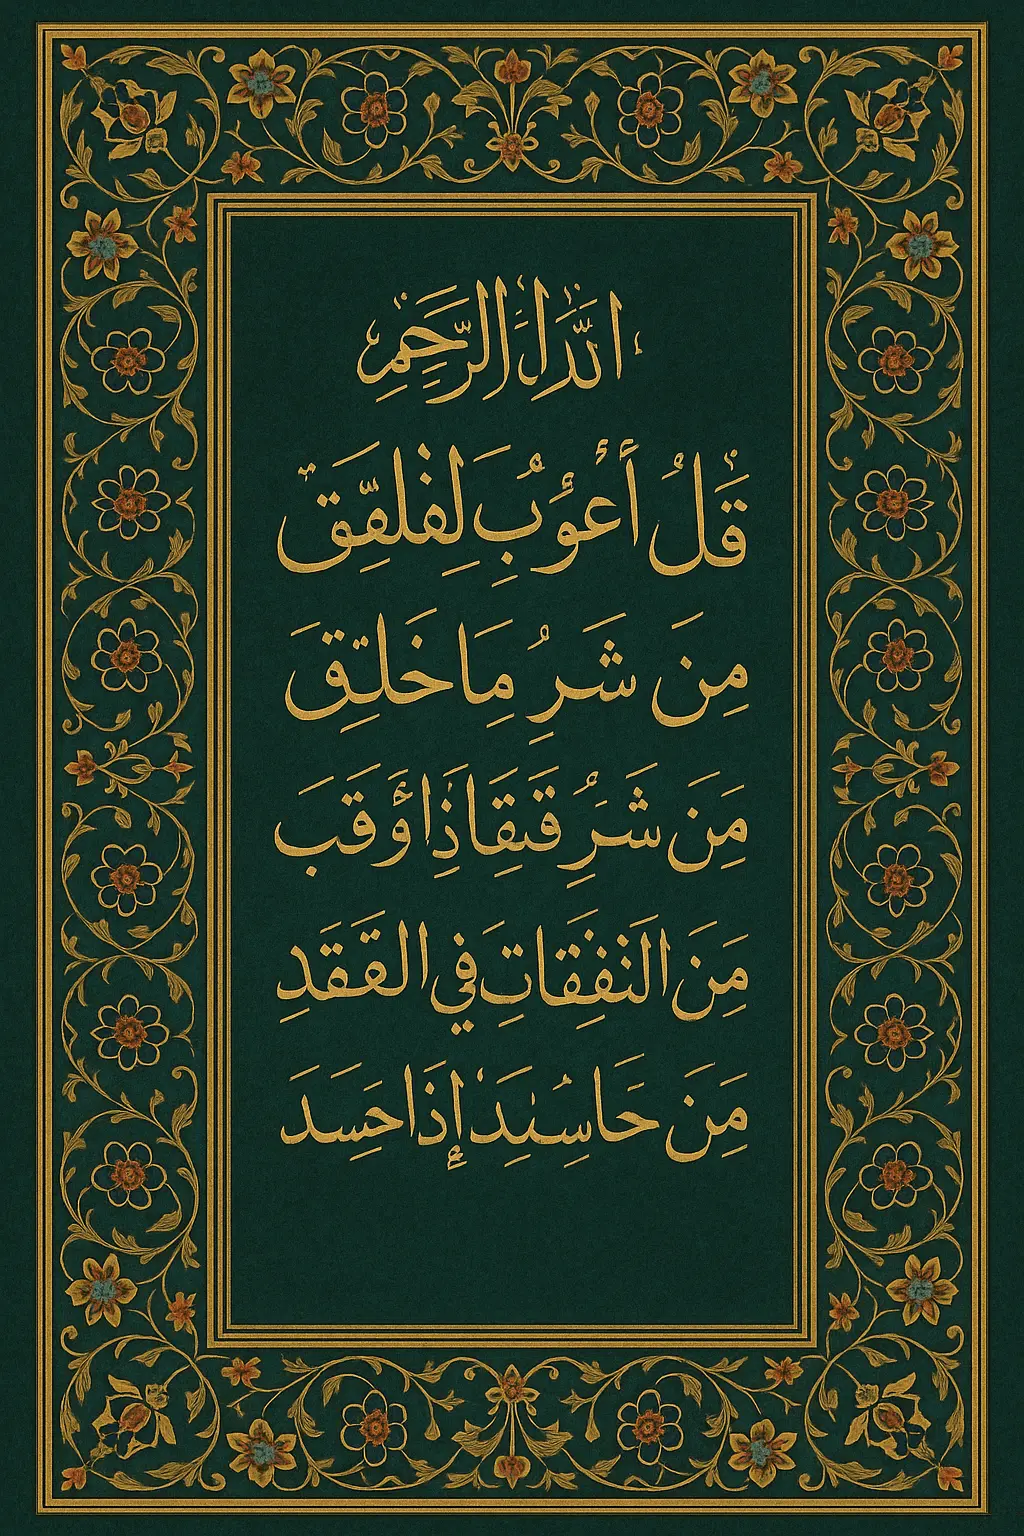 الرَّحِمِ
قَلُ أَعُوُبِ لِفْلِقَّق
مِنَ شَرِ مِا خَلِق
مِنَ شَرِ قَىِقَاذِا أَوقَب
مِنَ النَفِقَاتِ في القَقَدِ
مِنَ حَاسِىدِ إِذَا حَسِدَ